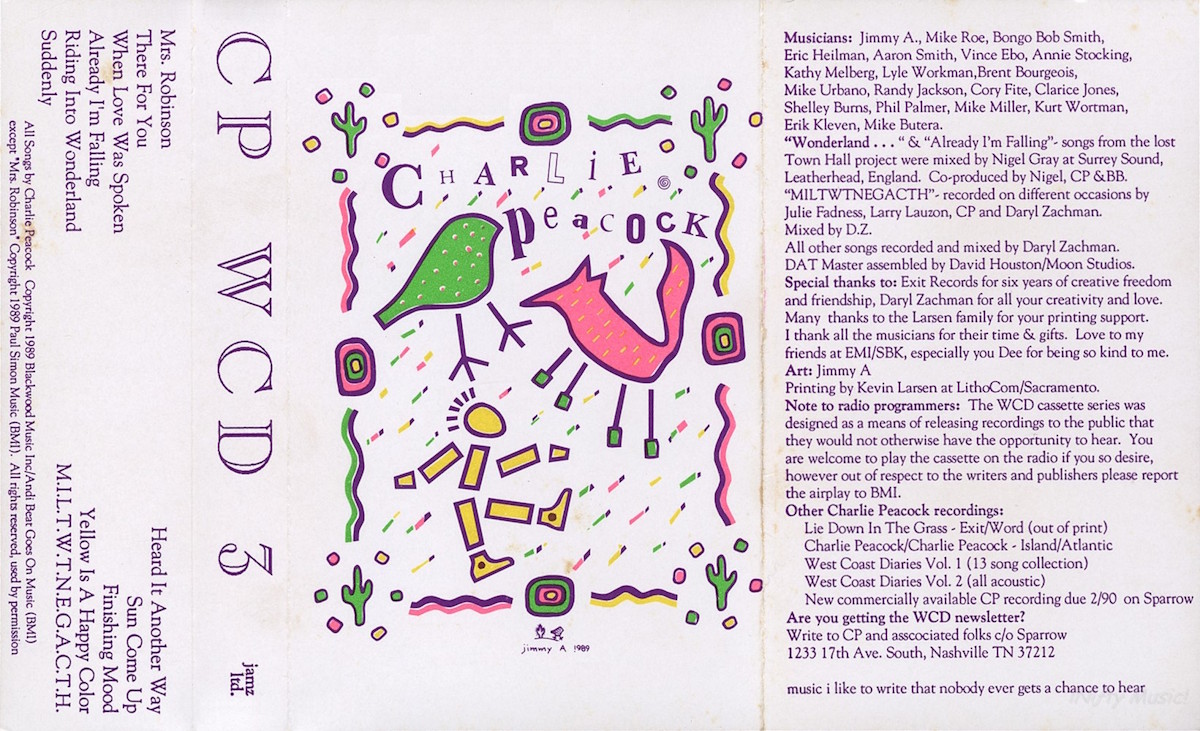 Mrs. Robinson
There For You
When Love Was Spoken
Already I'm Falling
Riding Into Wonderland
Suddenly
Heard It Another Way
Sun Come Up
Finishing Mood
Yellow Is A Happy Color
M.I.L.T.W.T.N.E.G.A.C.T.H.
All Songs by Charlie Peacock Copyright 1989 Blackwood Music Inc/Andi Beat Goes On Music (BMI)
except "Mrs. Robinson" Copyright 1989 Paul Simon Music (BMI). All rights reserved, used by permission
CP WCD 3
jamz
ltd.
CHARLiE
peacock
©
jimmy A 1989
Musicians: Jimmy A., Mike Roe, Bongo Bob Smith,
Eric Heilman, Aaron Smith, Vince Ebo, Annie Stocking,
Kathy Melberg, Lyle Workman,Brent Bourgeois,
Mike Urbano, Randy Jackson, Cory Fite, Clarice Jones,
Shelley Burns, Phil Palmer, Mike Miller, Kurt Wortman,
Erik Kleven, Mike Butera.
"Wonderland . . . " & "Already I'm Falling"- songs from the lost
Town Hall project were mixed by Nigel Gray at Surrey Sound,
Leatherhead, England. Co-produced by Nigel, CP &BB.
"MILTWTNEGACTH"- recorded on different occasions by
Julie Fadness, Larry Lauzon, CP and Daryl Zachman.
Mixed by D.Z.
All other songs recorded and mixed by Daryl Zachman.
DAT Master assembled by David Houston/Moon Studios.
Special thanks to: Exit Records for six years of creative freedom
and friendship, Daryl Zachman for all your creativity and love.
Many thanks to the Larsen family for your printing support.
I thank all the musicians for their time & gifts. Love to my
friends at EMI/SBK, especially you Dee for being so kind to me.
Art: Jimmy A
Printing by Kevin Larsen at LithoCom/Sacramento.
Note to radio programmers: The WCD cassette series was
designed as a means of releasing recordings to the public that
they would not otherwise have the opportunity to hear. You
are welcome to play the cassette on the radio if you so desire,
however out of respect to the writers and publishers please report
the airplay to BMI.
Other Charlie Peacock recordings:
Lie Down In The Grass - Exit/Word (out of print)
Charlie Peacock/Charlie Peacock - Island/Atlantic
West Coast Diaries Vol. 1 (13 song collection)
West Coast Diaries Vol. 2 (all acoustic)
New commercially available CP recording due 2/90 on Sparrow
Are you getting the WCD newsletter?
Write to CP and asscociated folks c/o Sparrow
1233 17th Ave. South, Nashville TN 37212
music i like to write that nobody ever gets a chance to hear
Music!